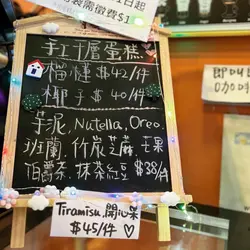 袋需徵費$1
手工千層蛋糕
榴槤 $42/件
椰子 $40/件
芋泥, Nutella, Oreo.
班蘭 竹炭芝麻 芒果
伯爵茶. 抹茶紅豆 $38/件
Tiramisu. 開心果
$45/件 ♡
即叫
咖